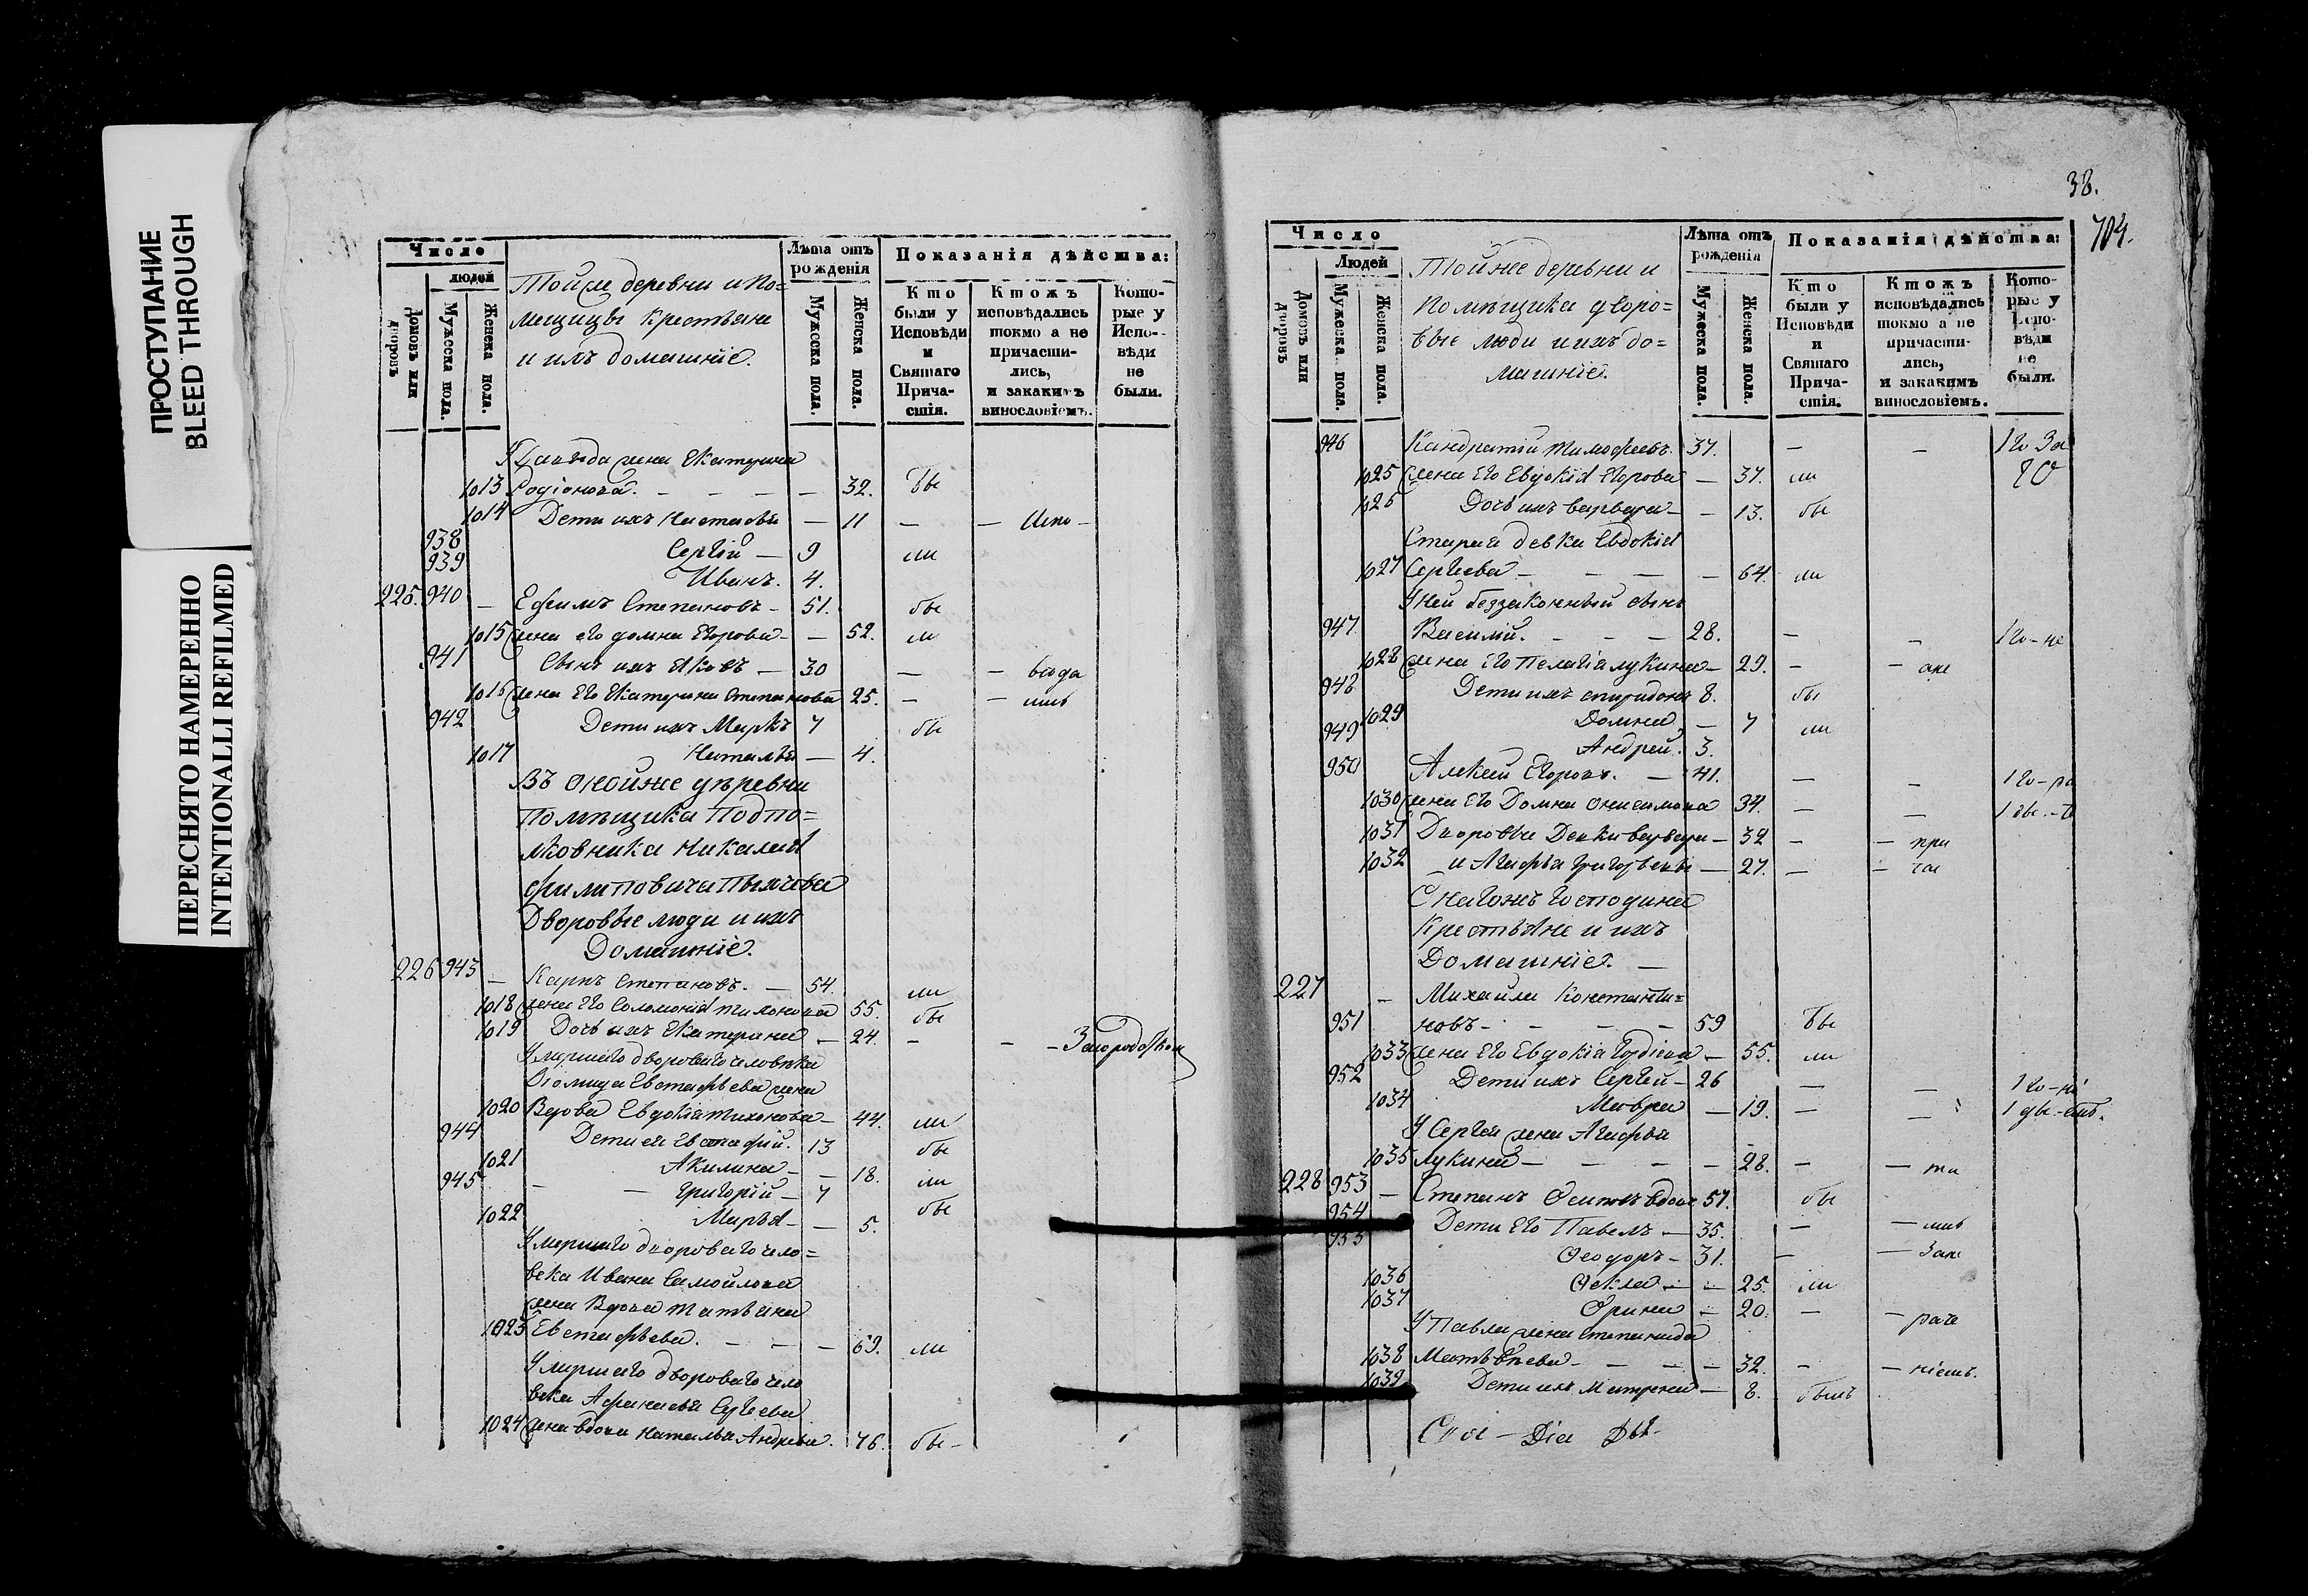 ПРОСТУПАНИЕ
BLEED THROUGH
ПЕРЕСНЯТО НАМЕРЕННО
INTENTIONALLI REFILMED
Число
людей
Домовъ или дворовъ
Мужеска пола.
Женска пола.
Тойже деревни и по=
мещицы крестьяне
и ихъ домашніе.
Лѣта отъ рожденія
Мужеска пола.
Женска пола.
Показанія дѣйства:
Кто были у Исповѣди и Святаго Причастія.
Ктожъ исповѣдались токмо а не причастились, и закакимъ винословіемъ.
Которые у Исповѣди не были.
жена Екатерина
1013 Родіонова. — — — — 32. бы
1014 Дети ихъ Настасья — 11 — — Испо—
938 Сергій — 9 ли
939 Иванъ. 4.
225. 940 — Ефимъ Степановъ — 51. бы
1015 жена его домна Егорова — — 52. ли
941 Сынъ ихъ Яковъ — 30 — —
1016 жена Его Екатерина Степанова 25. — —
942 Дети ихъ Маркъ 7 бы
1017 Наталья — 4.
Въ оной же деревни
помѣщика Подпо=
лковника Николая
филиповича
Дворовые люди и ихъ
Домашніе.
226 943 — Карпъ Степановъ. — 54. ли
1018 жена Его Соломонія тихонова 55. бы
1019 Дочь ихъ Екатерина — 24. — — —
Умершаго двороваго человѣка
Евстафьева жена
1020 Вдова Евдокія тихонова — 44. ли
944 Дети ея Евстафій. 13 бы
1021 Акилина — — 18. ли
945 — — григорій — 7 бы
1022 Марья — — 5.
Умершаго двороваго чело=
века Ивана Самойлова
жена Вдова татьяна
1023 Евстафьева. — — — 69. ли
Умершаго двороваго чело
века Афанасья Сергеева
1024 жена вдова наталья Андреева. 76. бы —
38.
704.
Число
Людей
Домовъ или дворовъ
Мужеска пола.
Женска пола.
Тойже деревни и
помѣщика дворо=
вые люди и ихъ до=
машніе.
Лѣта отъ рожденія
Мужеска пола.
Женска пола.
Показанія дѣйства:
Кто были у Исповѣди и Святаго Причастія.
Ктожъ исповѣдались токмо а не причастились, и закакимъ винословіемъ.
Которые у Исповѣди не были.
946 Кандратій тимофеевъ. 37. — — 1 го За
1025 жена Его Евдокія Егорова — 37. ли
1026 Дочь ихъ варвара — — 13. бы
Старая девка Евдокія
1027 Сергеева — — — — 64. ли
У ней беззаконный сынъ
947 Василій. — — — 28. — — 1 го — не
1028 жена Его пелагія лукина — 29. — —
948 Дети ихъ спиридонъ 8. бы
1029 Домна — 7 ли
949 Андрей. 3.
950 Алексей Егоровъ. — 41. — — 1 го — ра
1030 жена Его Домна онисимова 34. — —
1031 Дворовые Девки варвара — 32 — — при
1032 и Агафья григорьевы — 27. — —
Онагожъ господина
Крестьяне и ихъ
Домашніе. —
227 — Михайла Константи=
951 новъ — — — — 59 бы
1033 жена Его Евдокія гордіева — 55. ли
952 Дети ихъ Сергей — 26 — — 1 го — не
1034 Мавра — 19. — —
У Сергея жена Агафья
1035 лукина — — — — 28. — — ти
228 953 — Степанъ Осиповъ вдовъ 57. бы
954 Дети Его Павелъ — 35. — —
955 Феодоръ — 31. — —
1036 Фекла — — 25. ли
1037 Орина — 20. — — раче
У Павла жена степанида
1038 Матвѣева — — — — 32. — — ніемъ.
1039 Дети ихъ Матрена — 8. былъ